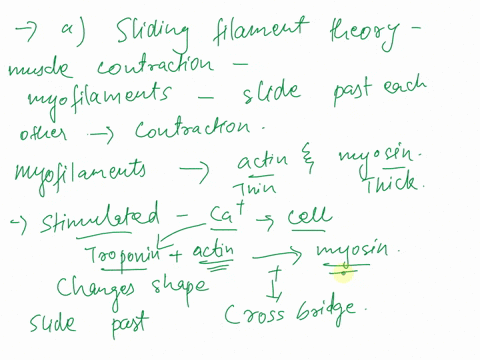 → a) Sliding filament theory -
muscle contraction -
myofilaments - slide past each
other → Contraction.
Myofilaments → actin & myosin.
Thin Thick.
→ Stimulated - Ca+ → cell
Troponin + actin → myosin.
+
Changes shape
↓
Cross bridge.
Slide past